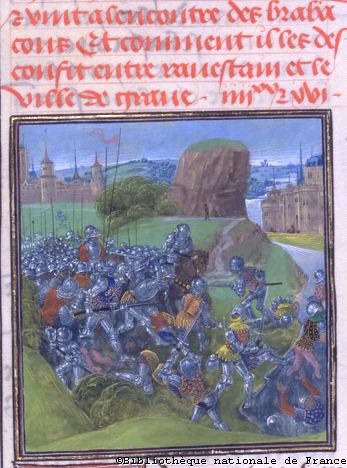 z vint a lencontre des braba
cons Et comment il les des
confit entre ravestain et le
ville de grave
©Bibliothèque nationale de France